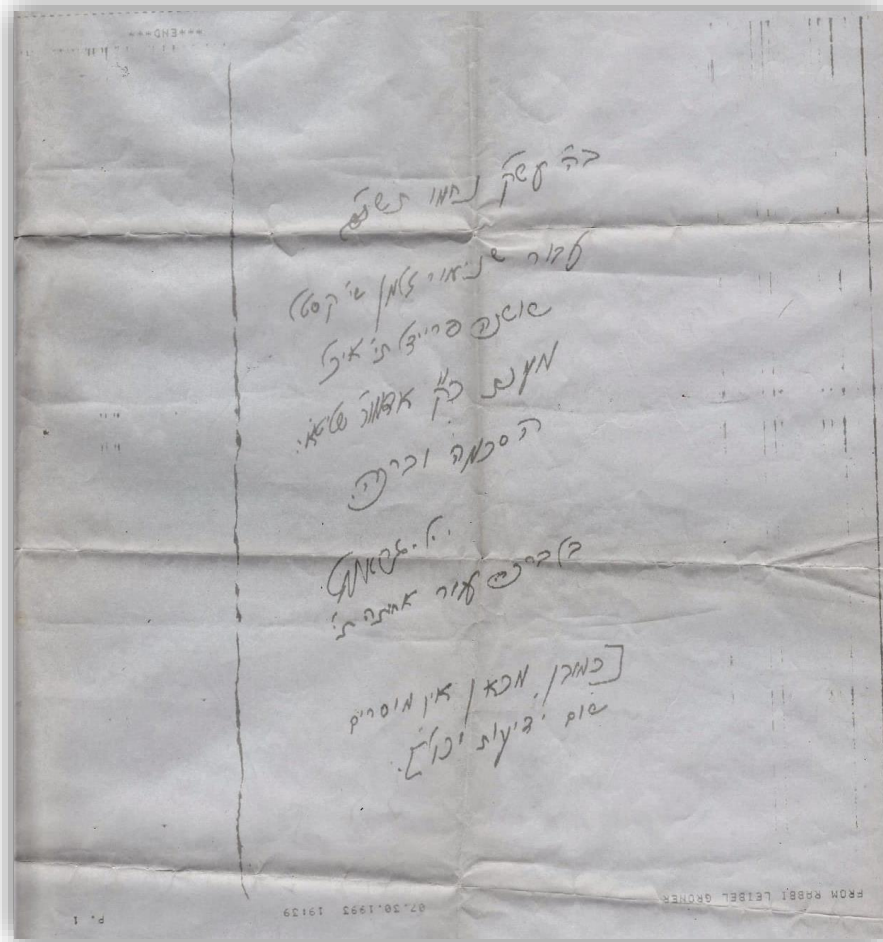 ***END***
ב"ה עש"ק נחמו תשנ"ג
עבור שניאור זלמן שי' קסטל
שושנה פריידל תי'
מענת כ"ק אדמו"ר שליט"א:
הסכמה וברכה.
י.ל.
ברכה עבור אחותה תי'
[כמובן, מכאן אין מוסרים
שום ידיעות וכו'].
FROM RABBI LEIBEL GRONER
07.30.1993 19:39
P. 1